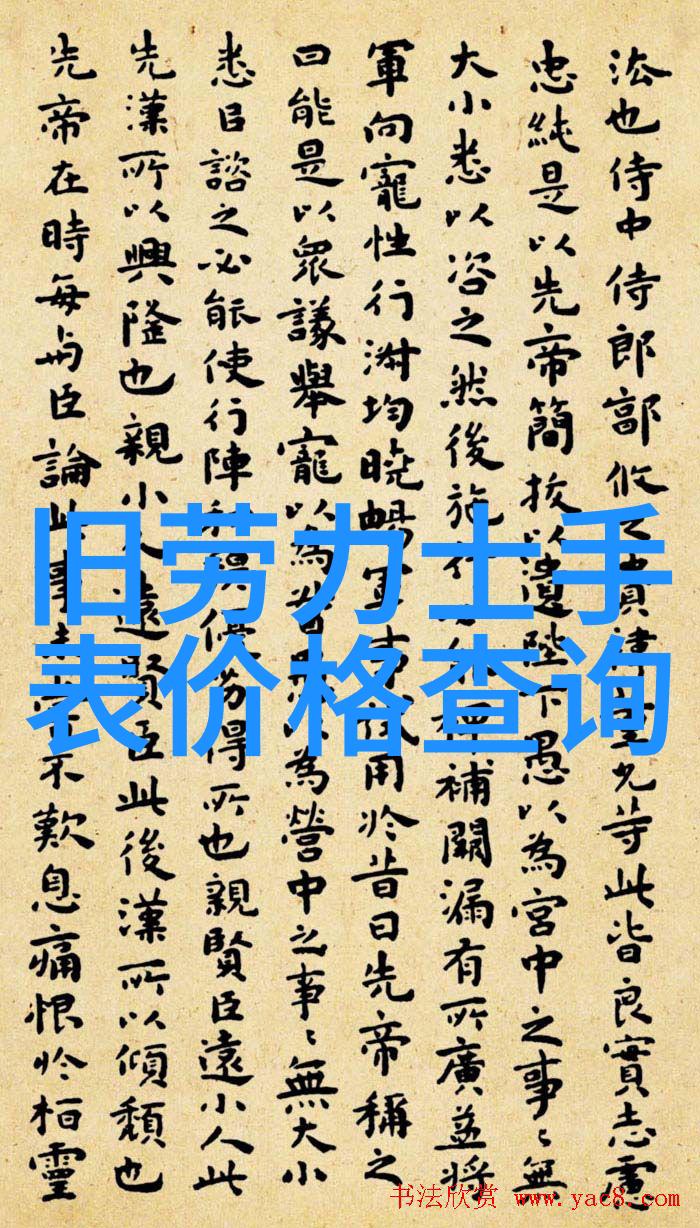 法也侍中侍郎郭攸之費禕董允等此皆良實志慮
忠純是以先帝簡拔以遺陛下愚以為宮中之事〻無
大小悉以咨之然後施行 裨補闕漏有所廣益將
軍向寵性行淑均曉暢軍事試用於昔日先帝稱之
曰能是以眾議舉寵以為督 以為營中之事〻無大小
悉以諮之必能使行陣和 優劣得所也親賢臣遠小人此
先漢所以興隆也親小人遠賢臣此後漢所以傾頹也
先帝在時每与臣論此事未 不歎息痛恨於桓靈
旧劳力士手
表价格查询
书法欣赏 www.yac8.com